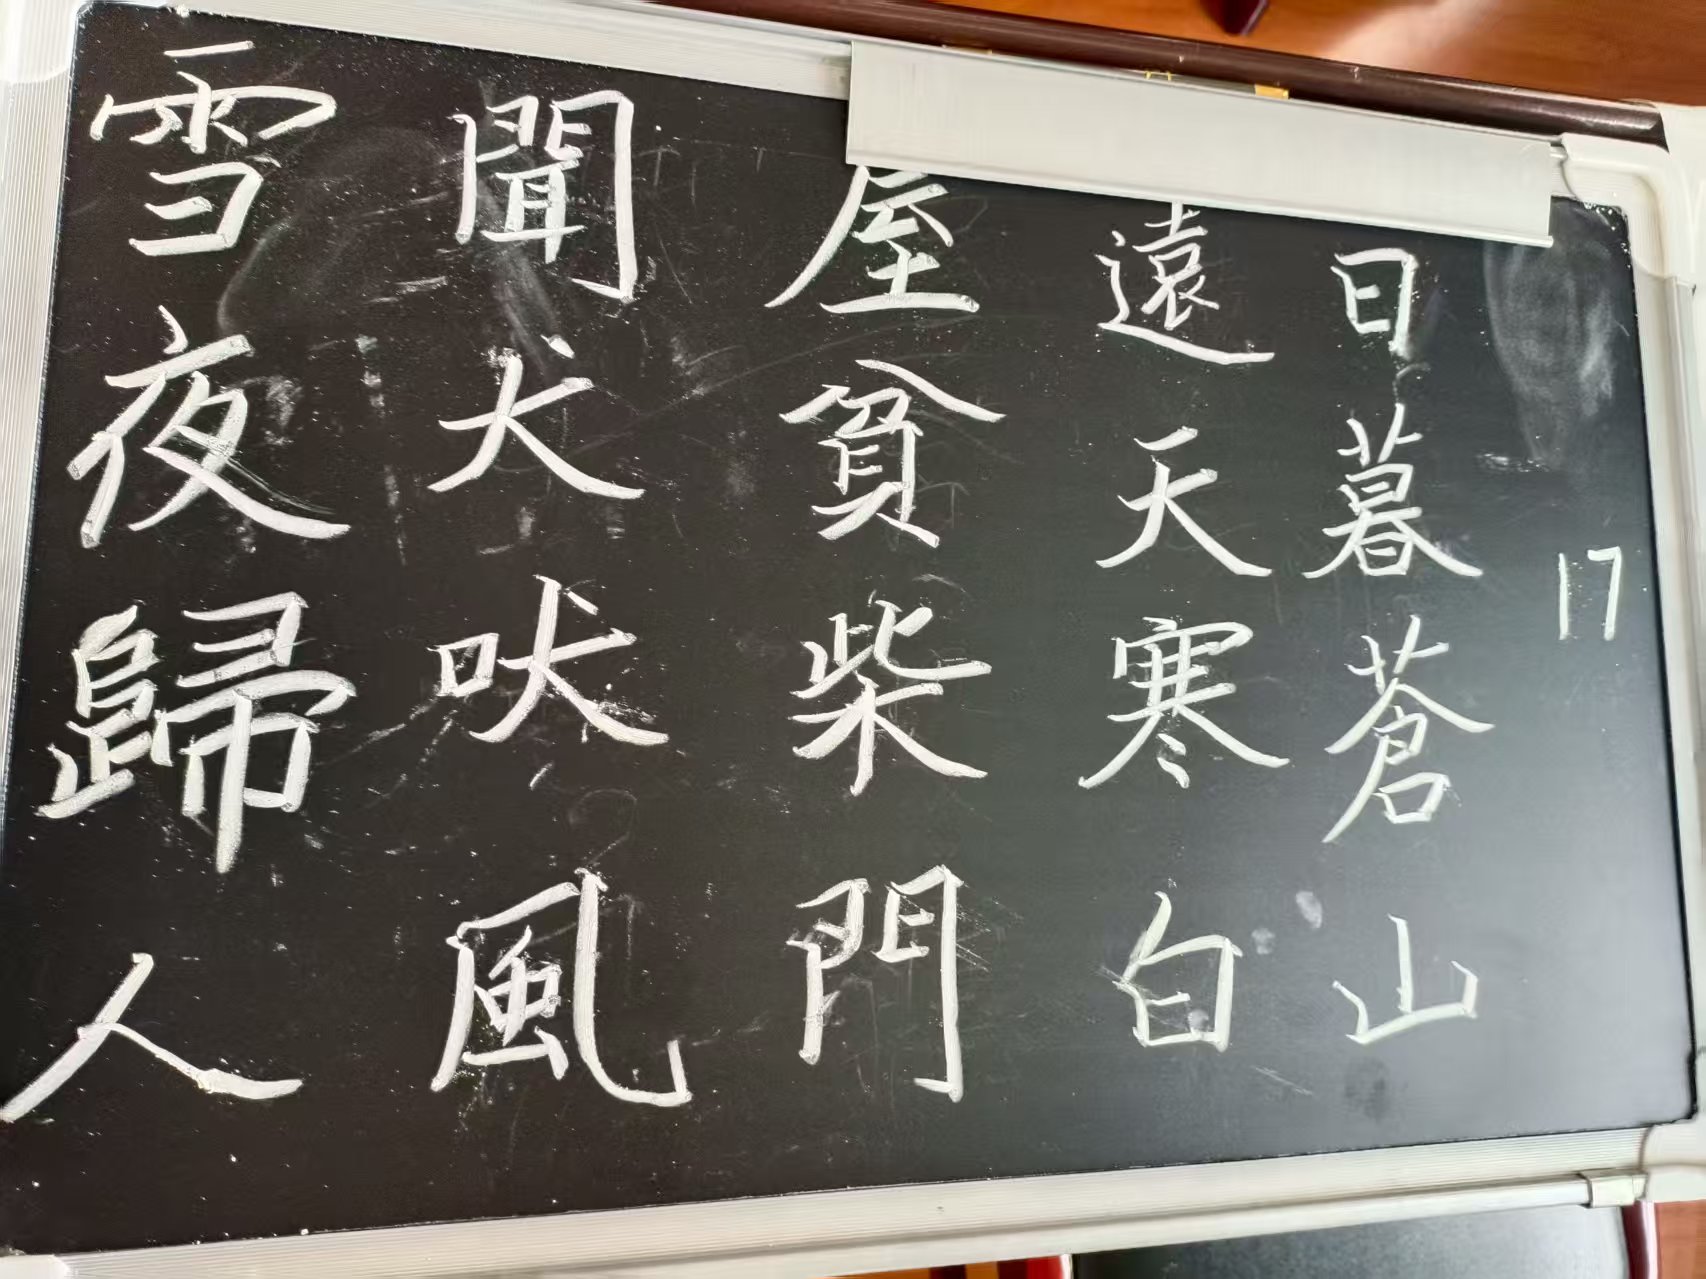 17
日暮蒼山
遠天寒白
屋貧柴門
聞犬吠風
雪夜歸人